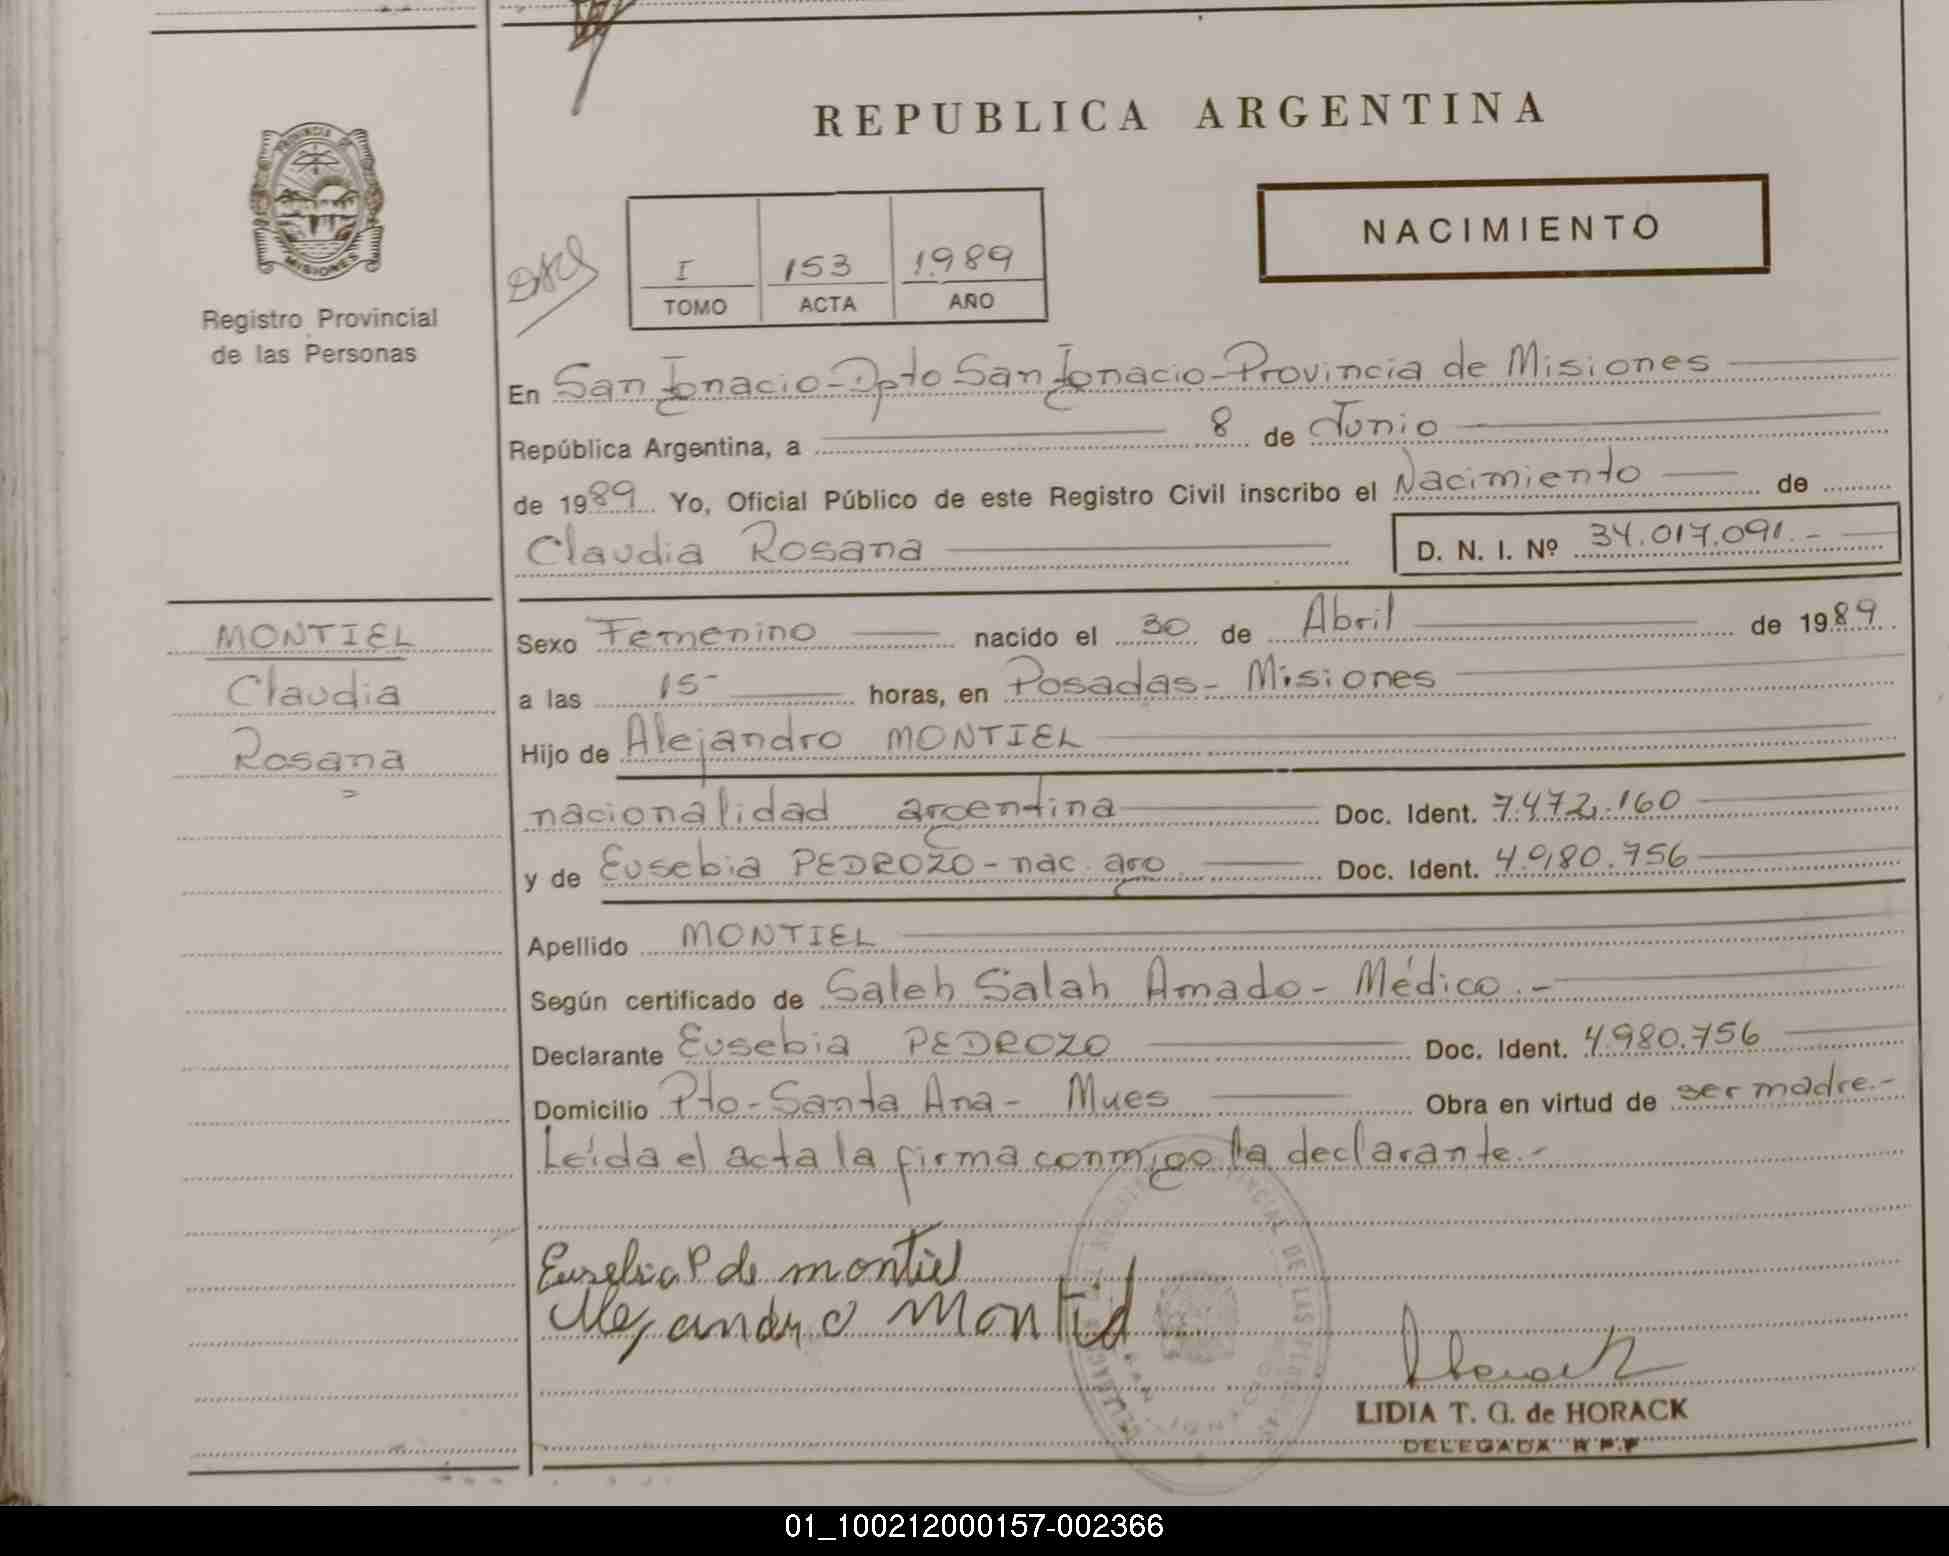 REPUBLICA ARGENTINA
PROVINCIA DE
MISIONES
Registro Provincial
de las Personas
NACIMIENTO
I 153 1989
TOMO ACTA AÑO
En San Ignacio - Dpto San Ignacio - Provincia de Misiones
República Argentina, a 8 de Junio
de 1989 Yo, Oficial Público de este Registro Civil inscribo el Nacimiento de
Claudia Rosana D. N. I. Nº 34.017.091.-
MONTIEL
Claudia
Rosana
Sexo Femenino nacido el 30 de Abril de 1989
a las 15- horas, en Posadas - Misiones
Hijo de Alejandro MONTIEL
nacionalidad argentina Doc. Ident. 7.472.160
y de Eusebia PEDROZO - nac. arg Doc. Ident. 4.980.756
Apellido MONTIEL
Según certificado de Saleh Salah Amado - Médico.-
Declarante Eusebia PEDROZO Doc. Ident. 4.980.756
Domicilio Pto - Santa Ana - Mnes Obra en virtud de ser madre.-
Leída el acta la firma conmigo la declarante.-
Eusebia P de montiel
Alejandro Montiel
LIDIA T. G. de HORACK
DELEGADA R.P.P
01_100212000157-002366